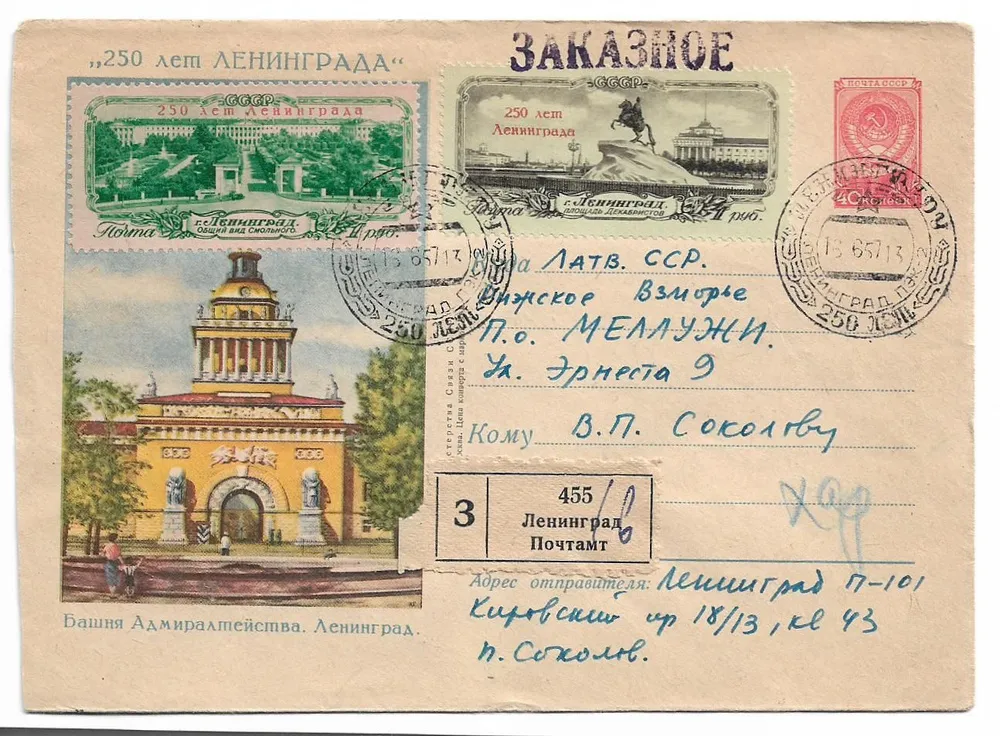 ЗАКАЗНОЕ
„250 лет ЛЕНИНГРАДА“
СССР
250 лет Ленинграда
г. Ленинград.
ОБЩИЙ ВИД СМОЛЬНОГО.
Почта 1 руб.
СССР
250 лет
Ленинграда
г. Ленинград.
ПЛОЩАДЬ ДЕКАБРИСТОВ
Почта 1 руб.
ПОЧТА СССР
40 копеек
6 57 13
ЛЕНИНГРАД
250 ЛЕТ
6 57 13
ЛЕНИНГРАД
250 ЛЕТ
Куда Латв. ССР.
Рижское Взморье
П.о. МЕЛЛУЖИ.
Ул. Эрнеста 9
Кому В.П. Соколову
З
455
Ленинград
Почтамт
Адрес отправителя: Ленинград П-101
Кировский пр 18/13, кв 43
П. Соколов.
Башня Адмиралтейства. Ленинград.